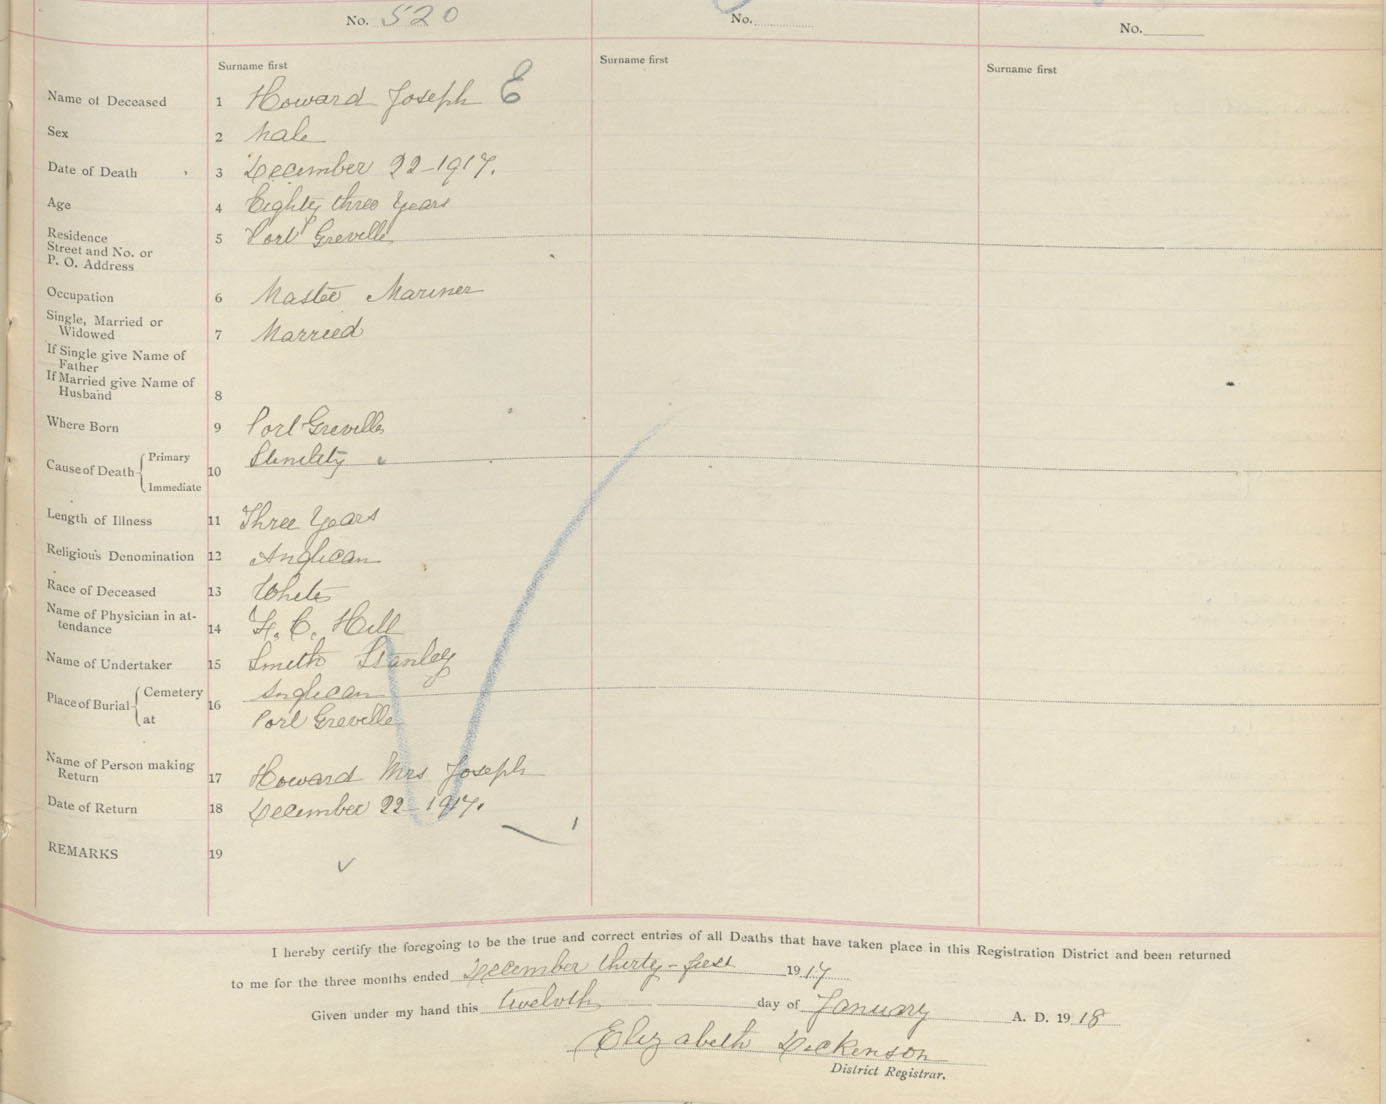 No. 520
No.
No.
Surname first
Surname first
Surname first
Name of Deceased 1 Howard Joseph E
Sex 2 Male
Date of Death 3 December 22-1917.
Age 4 Eighty three Years
Residence
Street and No. or
P. O. Address 5 Port Greville
Occupation 6 Master Mariner
Single, Married or
Widowed 7 Married
If Single give Name of
Father
If Married give Name of
Husband 8
Where Born 9 Port Greville
Cause of Death Primary
Immediate 10
Length of Illness 11 Three Years
Religious Denomination 12 Anglican
Race of Deceased 13 White
Name of Physician in at-
tendance 14 H. C. Hill
Name of Undertaker 15 Smith Stanley
Place of Burial Cemetery 16 Anglican
at Port Greville
Name of Person making
Return 17 Howard Mrs Joseph
Date of Return 18 December 22-1917.
REMARKS 19
I hereby certify the foregoing to be the true and correct entries of all Deaths that have taken place in this Registration District and been returned
to me for the three months ended December thirty-first 1917
Given under my hand this twelvth day of January A. D. 1918
Elizabeth Dickenson
District Registrar.